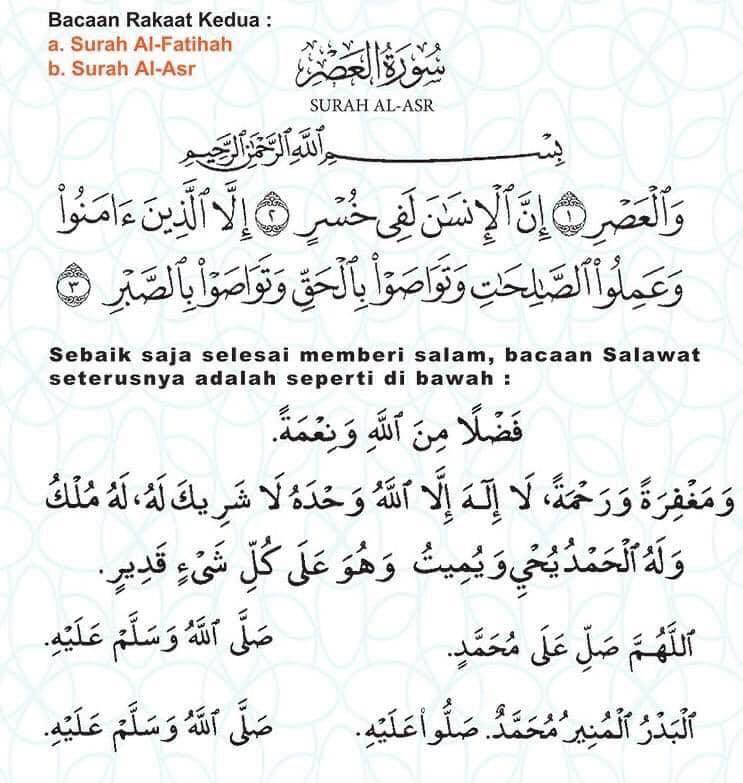 Bacaan Rakaat Kedua :
a. Surah Al-Fatihah
b. Surah Al-Asr
سُورَةُ العَصْرِ
SURAH AL-ASR
بِسْمِ اللَّهِ الرَّحْمَٰنِ الرَّحِيمِ
وَٱلْعَصْرِ ١ إِنَّ ٱلْإِنسَٰنَ لَفِى خُسْرٍ ٢ إِلَّا ٱلَّذِينَ ءَامَنُوا۟
وَعَمِلُوا۟ ٱلصَّٰلِحَٰتِ وَتَوَاصَوْا۟ بِٱلْحَقِّ وَتَوَاصَوْا۟ بِٱلصَّبْرِ ٣
Sebaik saja selesai memberi salam, bacaan Salawat
seterusnya adalah seperti di bawah :
فَضْلًا مِنَ ٱللَّهِ وَنِعْمَةً.
وَمَغْفِرَةً وَرَحْمَةً، لَا إِلَٰهَ إِلَّا ٱللَّهُ وَحْدَهُ لَا شَرِيكَ لَهُ، لَهُ مُلْكُ
وَلَهُ ٱلْحَمْدُ يُحْيِ وَيُمِيتُ وَهُوَ عَلَى كُلِّ شَىْءٍ قَدِيرٍ.
ٱللَّهُمَّ صَلِّ عَلَى مُحَمَّدٍ. صَلَّى ٱللَّهُ وَسَلَّمْ عَلَيْهِ.
ٱلْبَدْرُ ٱلْمُنِيرُ مُحَمَّدٌ. صَلُّوا عَلَيْهِ. صَلَّى ٱللَّهُ وَسَلَّمْ عَلَيْهِ.